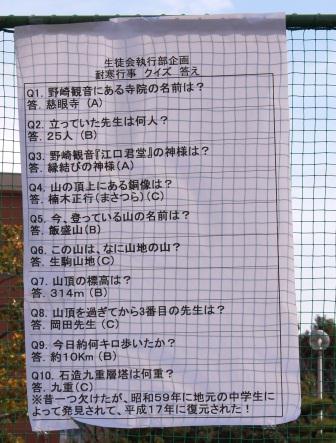 生徒会執行部企画
耐寒行事 クイズ 答え
Q1. 野崎観音にある寺院の名前は?
答. 慈眼寺 (A)
Q2. 立っていた先生は何人?
答. 25人 (B)
Q3. 野崎観音『江口君堂』の神様は?
答. 縁結びの神様(A)
Q4. 山の頂上にある銅像は?
答. 楠木正行(まさつら)(C)
Q5. 今、登っている山の名前は?
答. 飯盛山(B)
Q6. この山は、なに山地の山?
答. 生駒山地(C)
Q7. 山頂の標高は?
答. 314m (B)
Q8. 山頂を過ぎてから3番目の先生は?
答. 岡田先生(C)
Q9. 今日約何キロ歩いたか?
答. 約10Km (B)
Q10. 石造九重層塔は何重?
答. 九重(C)
※昔一つ欠けたが、昭和59年に地元の中学生に
よって発見されて、平成17年に復元された!